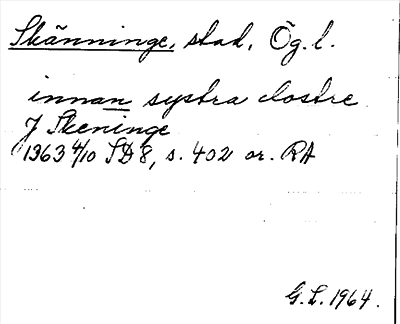 Skänninge, stad, Ög. l.
innan systra clostre
J Skeninge
1363 4/10 SD 8, s. 402 or. RA
G. L. 1964.